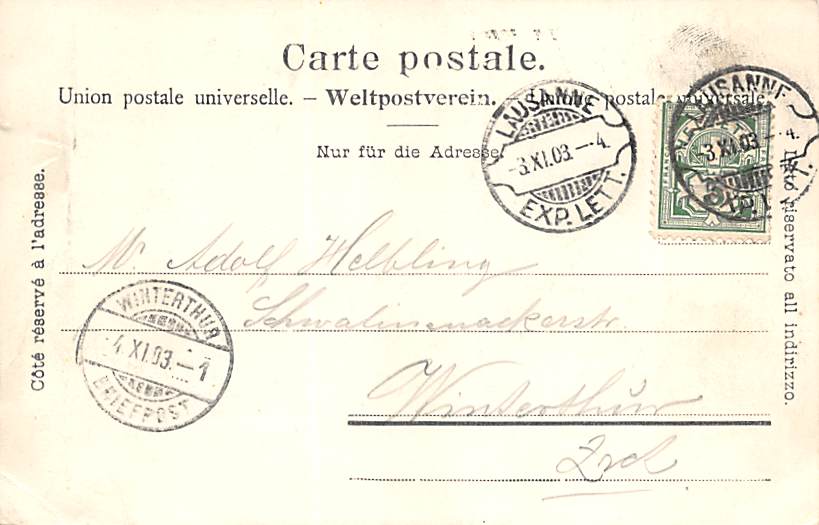 Carte postale.
Union postale universelle. – Weltpostverein. – Unione postale universale.
Nur für die Adresse.
Côté réservé à l'adresse.
Lato riservato all indirizzo.
LAUSANNE
-3.XI.03.–4.
EXP. LETT.
LAUSANNE
-3.XI.03.–4.
EXP. LETT.
FRANCO
Mr Adolf Helbling
Schwalmenackerstr.
Winterthur
Zrch
WINTERTHUR
-4.XI.03.–1
BRIEFPOST